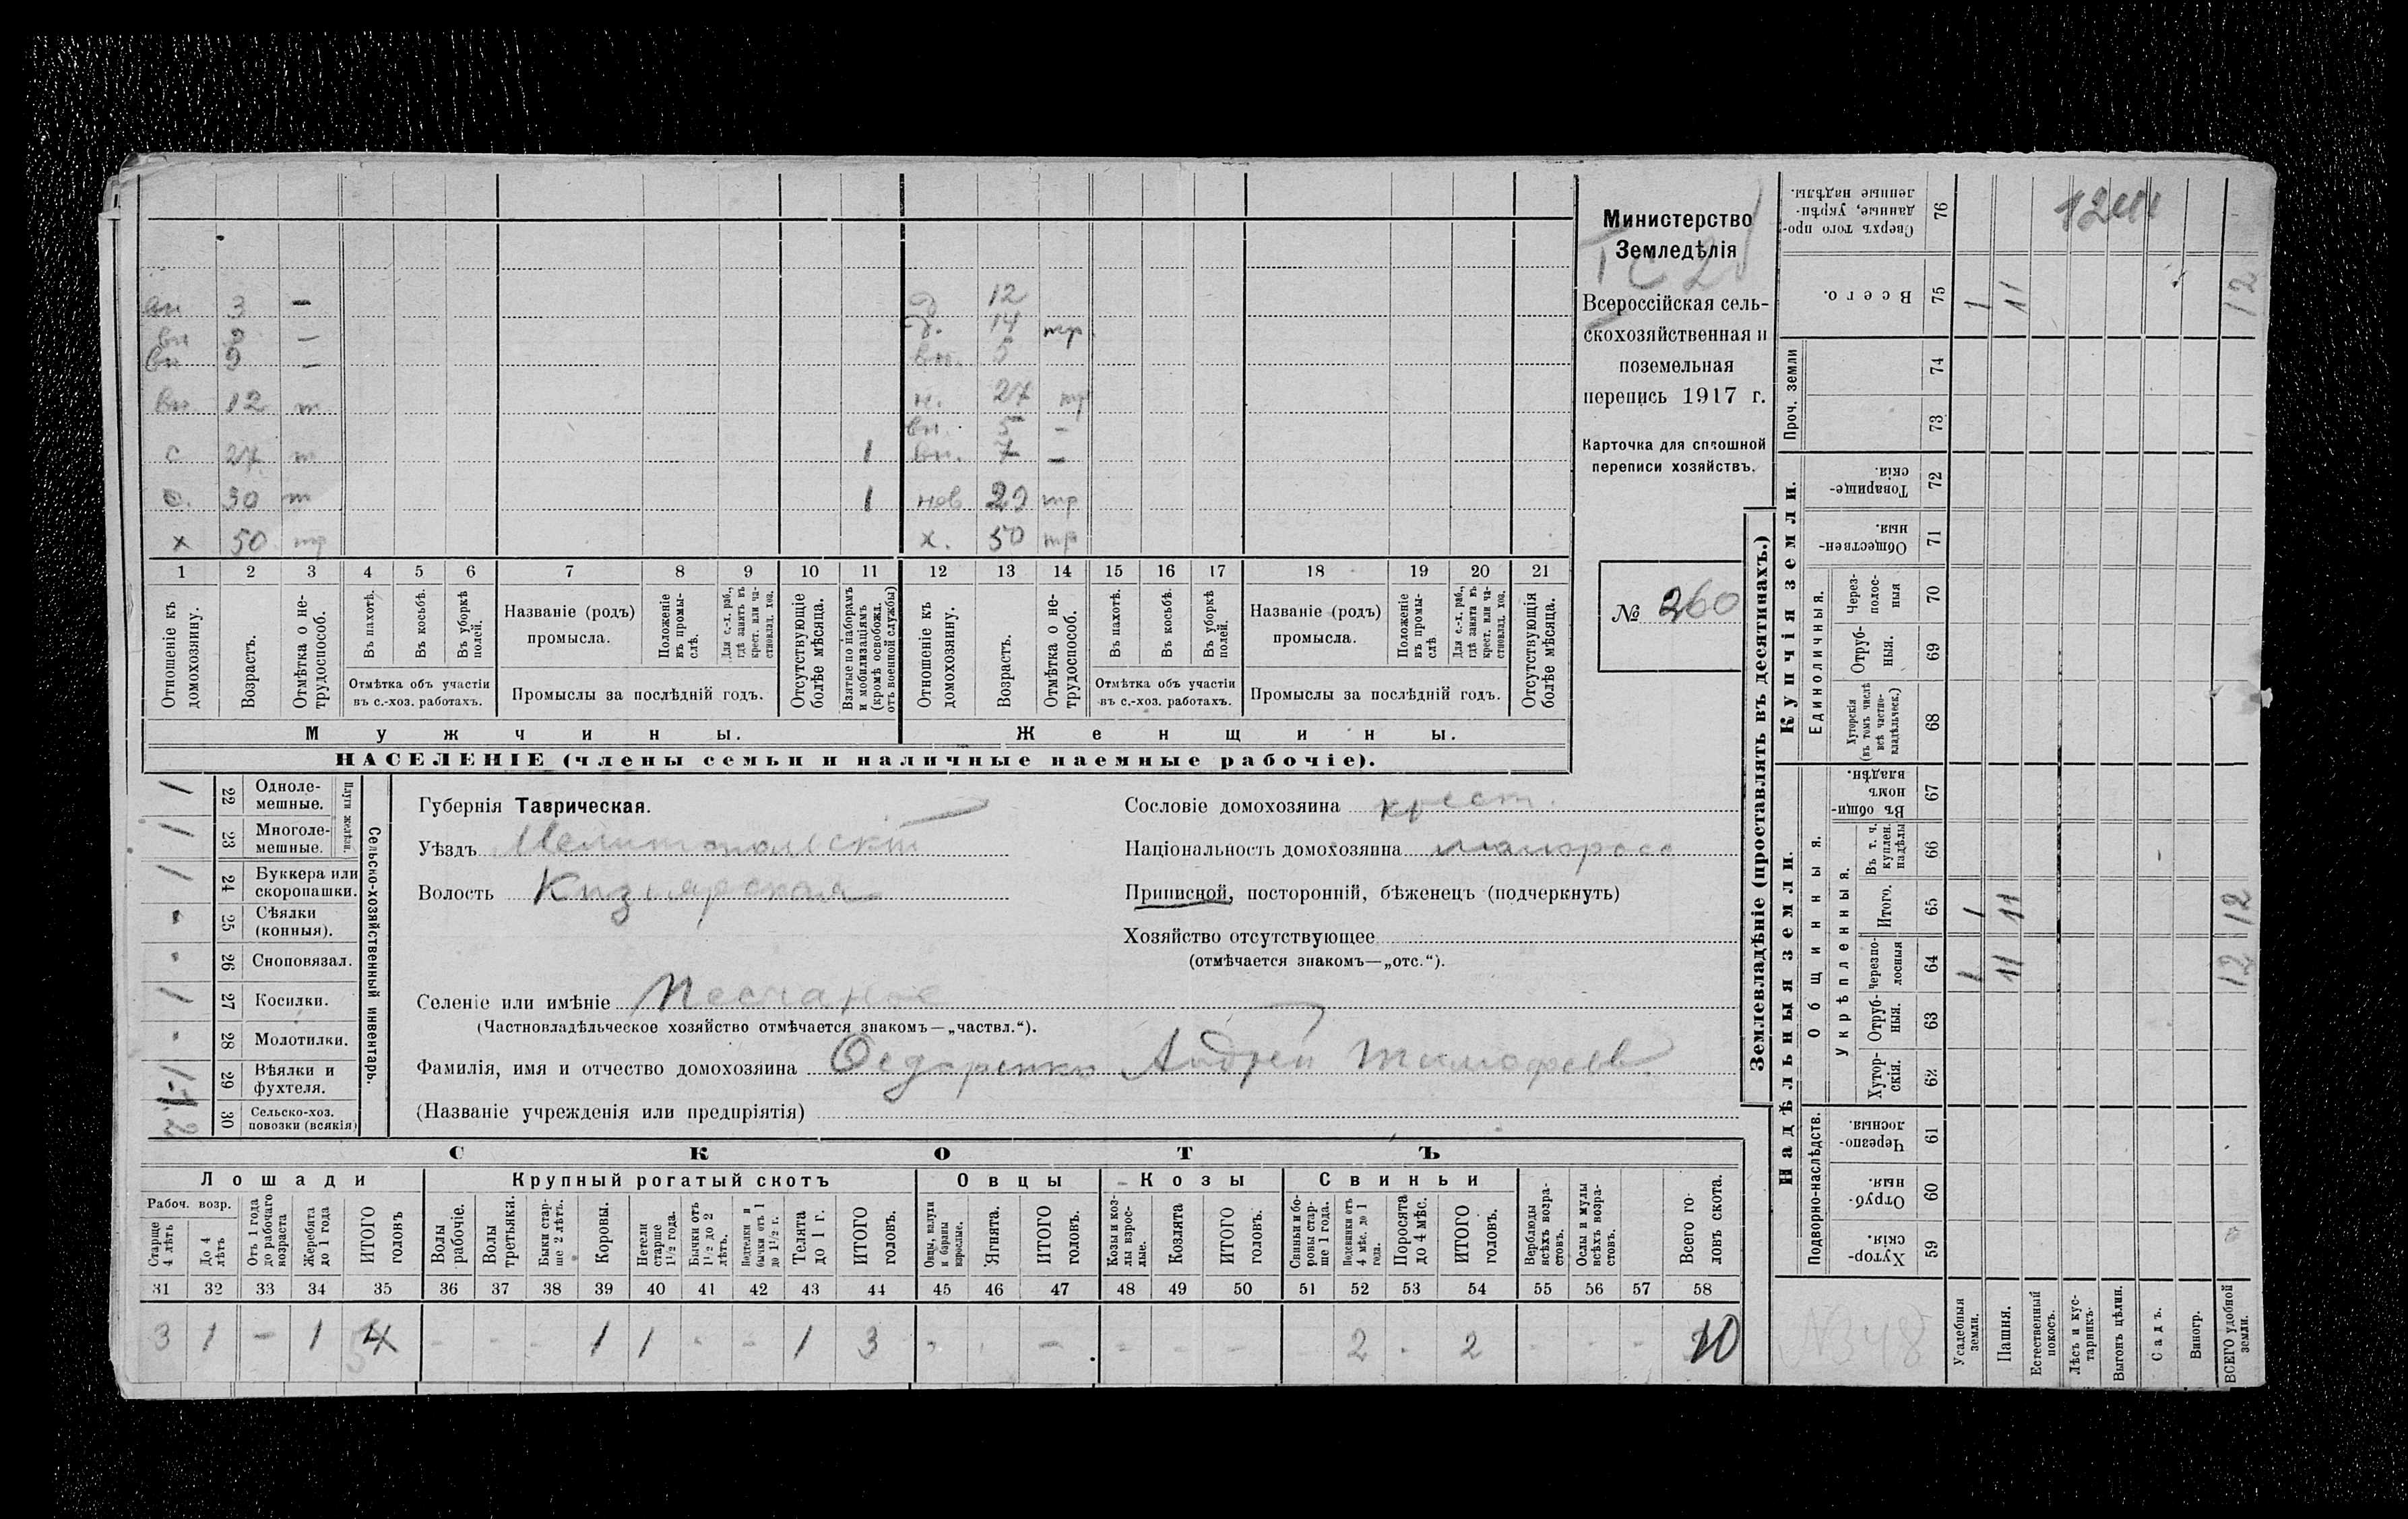 ан 3 — д 12
вн 8 — д. 14 тр.
вн 9 — вн. 5
вн. 12 т н. 27 тр
вн. 5 —
с 27 т 1 вн. 7 —
с. 30 т 1 нев 29 тр
х 50 тр х. 50 тр
1 2 3 4 5 6 7 8 9 10 11 12 13 14 15 16 17 18 19 20 21
Отношеніе къ домохозяину.
Возрастъ.
Отмѣтка о нетрудоспособ.
Въ пахотѣ.
Въ косьбѣ.
Въ уборкѣ полей.
Отмѣтка объ участіи
въ с.-хоз. работахъ.
Названіе (родъ)
промысла.
Положеніе въ промыслѣ.
Для с.-х. раб., гдѣ занятъ въ крест. или частновлад. хоз.
Промыслы за послѣдній годъ.
Отсутствующіе болѣе мѣсяца.
Взятые по наборамъ и мобилизаціямъ (кромѣ освобожд. отъ военной службы)
Отношеніе къ домохозяину.
Возрастъ.
Отмѣтка о нетрудоспособ.
Въ пахотѣ.
Въ косьбѣ.
Въ уборкѣ полей.
Отмѣтка объ участіи
въ с.-хоз. работахъ.
Названіе (родъ)
промысла.
Положеніе въ промыслѣ
Для с.-х. раб., гдѣ занята въ крест. или частновлад. хоз.
Промыслы за послѣдній годъ.
Отсутствующія болѣе мѣсяца.
Мужчины. Женщины.
НАСЕЛЕНІЕ (члены семьи и наличные наемные рабочіе).
Министерство
Земледѣлія
Всероссійская сель-
скохозяйственная и
поземельная
перепись 1917 г.
Карточка для сплошной
переписи хозяйствъ.
№ 260
Сельско-хозяйственный инвентарь.
Плуги желѣзн.
1 22 Одноле-
мешные.
1 23 Многоле-
мешные.
1 24 Буккера или
скоропашки.
- 25 Сѣялки
(конныя).
- 26 Сноповязал.
1 27 Косилки.
- 28 Молотилки.
1 29 Вѣялки и
фухтеля.
2 30 Сельско-хоз.
повозки (всякія)
Губернія Таврическая.
Уѣздъ Мелитопольскій
Волость Кизіярская
Сословіе домохозяина крест.
Національность домохозяина малоросс
Приписной, посторонній, бѣженецъ (подчеркнуть)
Хозяйство отсутствующее
(отмѣчается знакомъ—„отс.“).
Селеніе или имѣніе Песчаное
(Частновладѣльческое хозяйство отмѣчается знакомъ—„частвл.“).
Фамилія, имя и отчество домохозяина Федоренко Андрей Тимофеев
(Названіе учрежденія или предпріятія)
СКОТЪ
Лошади Крупный рогатый скотъ Овцы Козы Свиньи
Рабоч. возр.
Старше 4 лѣтъ
До 4 лѣтъ
Отъ 1 года до рабочаго возраста
Жеребята до 1 года
ИТОГО головъ
Волы рабочіе.
Волы третьяки.
Быки старше 2 лѣтъ.
Коровы.
Нетели старше 1½ года.
Бычки отъ 1½ до 2 лѣтъ.
Подтелки и бычки отъ 1 до 1½ г.
Телята до 1 г.
ИТОГО головъ.
Овцы, валухи и бараны взрослые.
Ягнята.
ИТОГО головъ.
Козы и козлы взрослые.
Козлята
ИТОГО головъ.
Свиньи и боровы старше 1 года.
Подсвинки отъ 4 мѣс. до 1 года.
Поросята до 4 мѣс.
ИТОГО головъ.
Верблюды всѣхъ возрастовъ.
Ослы и мулы всѣхъ возрастовъ.
Всего головъ скота.
31 32 33 34 35 36 37 38 39 40 41 42 43 44 45 46 47 48 49 50 51 52 53 54 55 56 57 58
3 1 — 1 - - - 1 1 - - 1 3 - - - - - - 2 - 2 - - - 10
Землевладѣніе (проставлять въ десятинахъ.)
Надѣльныя земли.
Купчія земли.
Проч. земли
Подворно-наслѣдств.
Общинныя.
Укрѣпленныя.
Единоличныя.
Хуторскія. 59
Отрубныя. 60
Черезполосныя. 61
Хуторскія. 62
Отрубныя. 63
Черезполосныя 64
Итого. 65
Въ т. ч. куплен. надѣлы 66
Въ общинномъ владѣн. 67
Хуторскія (въ томъ числѣ всѣ частновладѣльческ.) 68
Отрубныя. 69
Черезполосныя 70
Общественныя. 71
Товарищескія. 72
73
74
Всего. 75
Сверхъ того проданные, укрѣпленные надѣлы. 76
Усадебныя земли. 1 1 1
Пашня. 11 11 11
Естественный покосъ.
Лѣсъ и кустарникъ.
Выгонъ цѣлин.
Садъ.
Виногр.
ВСЕГО удобной земли. 12 12 12
№348